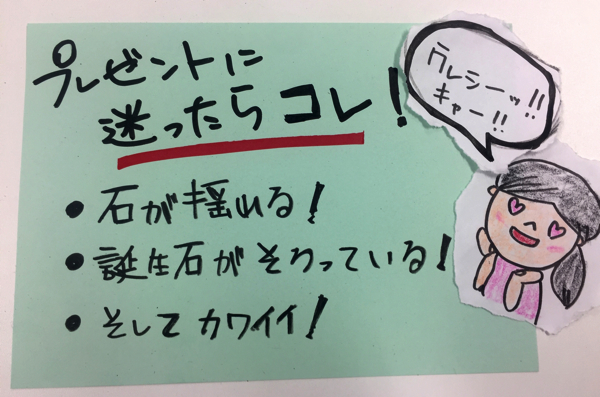 プレゼントに
迷ったらコレ!
ウレシーッ!!
キャー!!
• 石が揺れる!
• 誕生石がそろっている!
• そしてカワイイ!